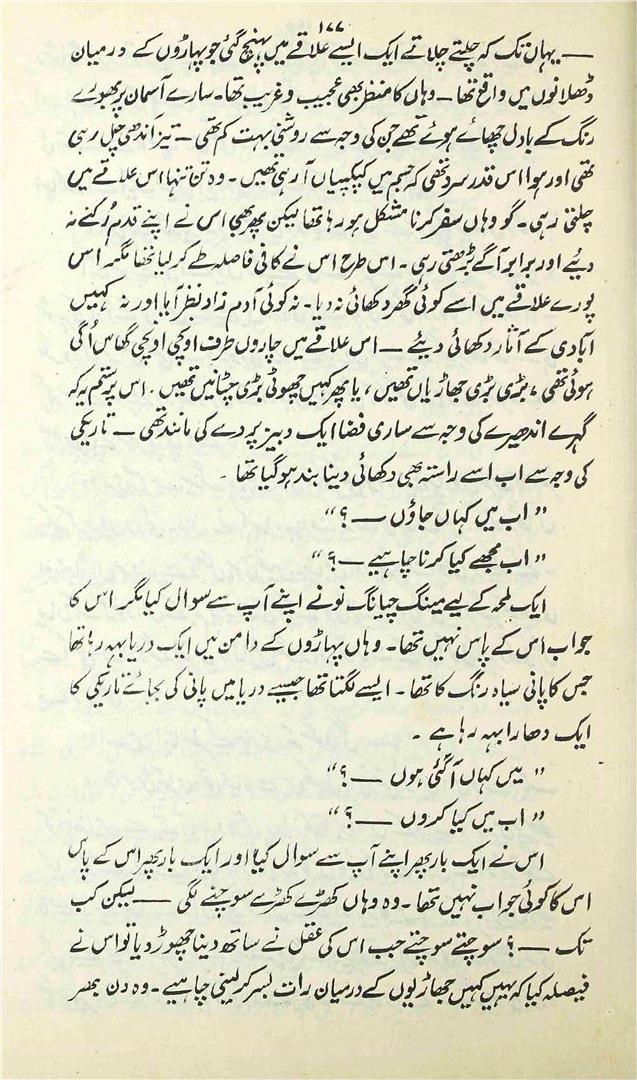 ۱۷۷
— یہاں تک کہ چلتے چلاتے ایک ایسے علاقے میں پہنچ گئی جو پہاڑوں کے درمیان
ڈھلانوں میں واقع تھا — وہاں کا منظر بھی عجیب و غریب تھا۔ سارے آسمان پر بھورے
رنگ کے بادل چھائے ہوئے تھے جن کی وجہ سے روشنی بہت کم تھی — تیز آندھی چل رہی
تھی اور ہوا اس قدر سرد تھی کہ جسم میں کپکپیاں آ رہی تھیں۔ وہ تن تنہا اس علاقے میں
چلتی رہی۔ گو وہاں سفر کرنا مشکل ہو رہا تھا لیکن پھر بھی اس نے اپنے قدم رکنے نہ
دیئے اور برابر آگے بڑھتی رہی۔ اس طرح اس نے کافی فاصلہ طے کر لیا تھا مگر اس
پورے علاقے میں اسے کوئی گھر دکھائی نہ دیا۔ نہ کوئی آدم زاد نظر آیا اور نہ کہیں
آبادی کے آثار دکھائی دیئے — اس علاقے میں چاروں طرف اونچی اونچی گھاس اُگی
ہوئی تھی، بڑی بڑی جھاڑیاں تھیں، یا پھر کہیں چھوٹی بڑی چٹانیں تھیں۔ اس پر ستم یہ کہ
گہرے اندھیرے کی وجہ سے ساری فضا ایک دبیز پردے کی مانند تھی — تاریکی
کی وجہ سے اب اسے راستہ بھی دکھائی دینا بند ہو گیا تھا۔
”اب میں کہاں جاؤں —؟“
”اب مجھے کیا کرنا چاہیے —؟“
ایک لمحہ کے لیے مینگ چیانگ نو نے اپنے آپ سے سوال کیا مگر اس کا
جواب اس کے پاس نہیں تھا۔ وہاں پہاڑوں کے دامن میں ایک دریا بہہ رہا تھا
جس کا پانی سیاہ رنگ کا تھا۔ ایسے لگتا تھا جیسے دریا میں پانی کی بجائے تاریکی کا
ایک دھارا بہہ رہا ہے۔
”میں کہاں آ گئی ہوں —؟“
”اب میں کیا کروں —؟“
اس نے ایک بار پھر اپنے آپ سے سوال کیا اور ایک بار پھر اس کے پاس
اس کا کوئی جواب نہیں تھا۔ وہ وہاں کھڑے کھڑے سوچنے لگی — لیکن کب
تک —؟ سوچتے سوچتے جب اس کی عقل نے ساتھ دینا چھوڑ دیا تو اس نے
فیصلہ کیا کہ یہیں کہیں جھاڑیوں کے درمیان رات بسر کر لینی چاہیے۔ وہ دن بھر